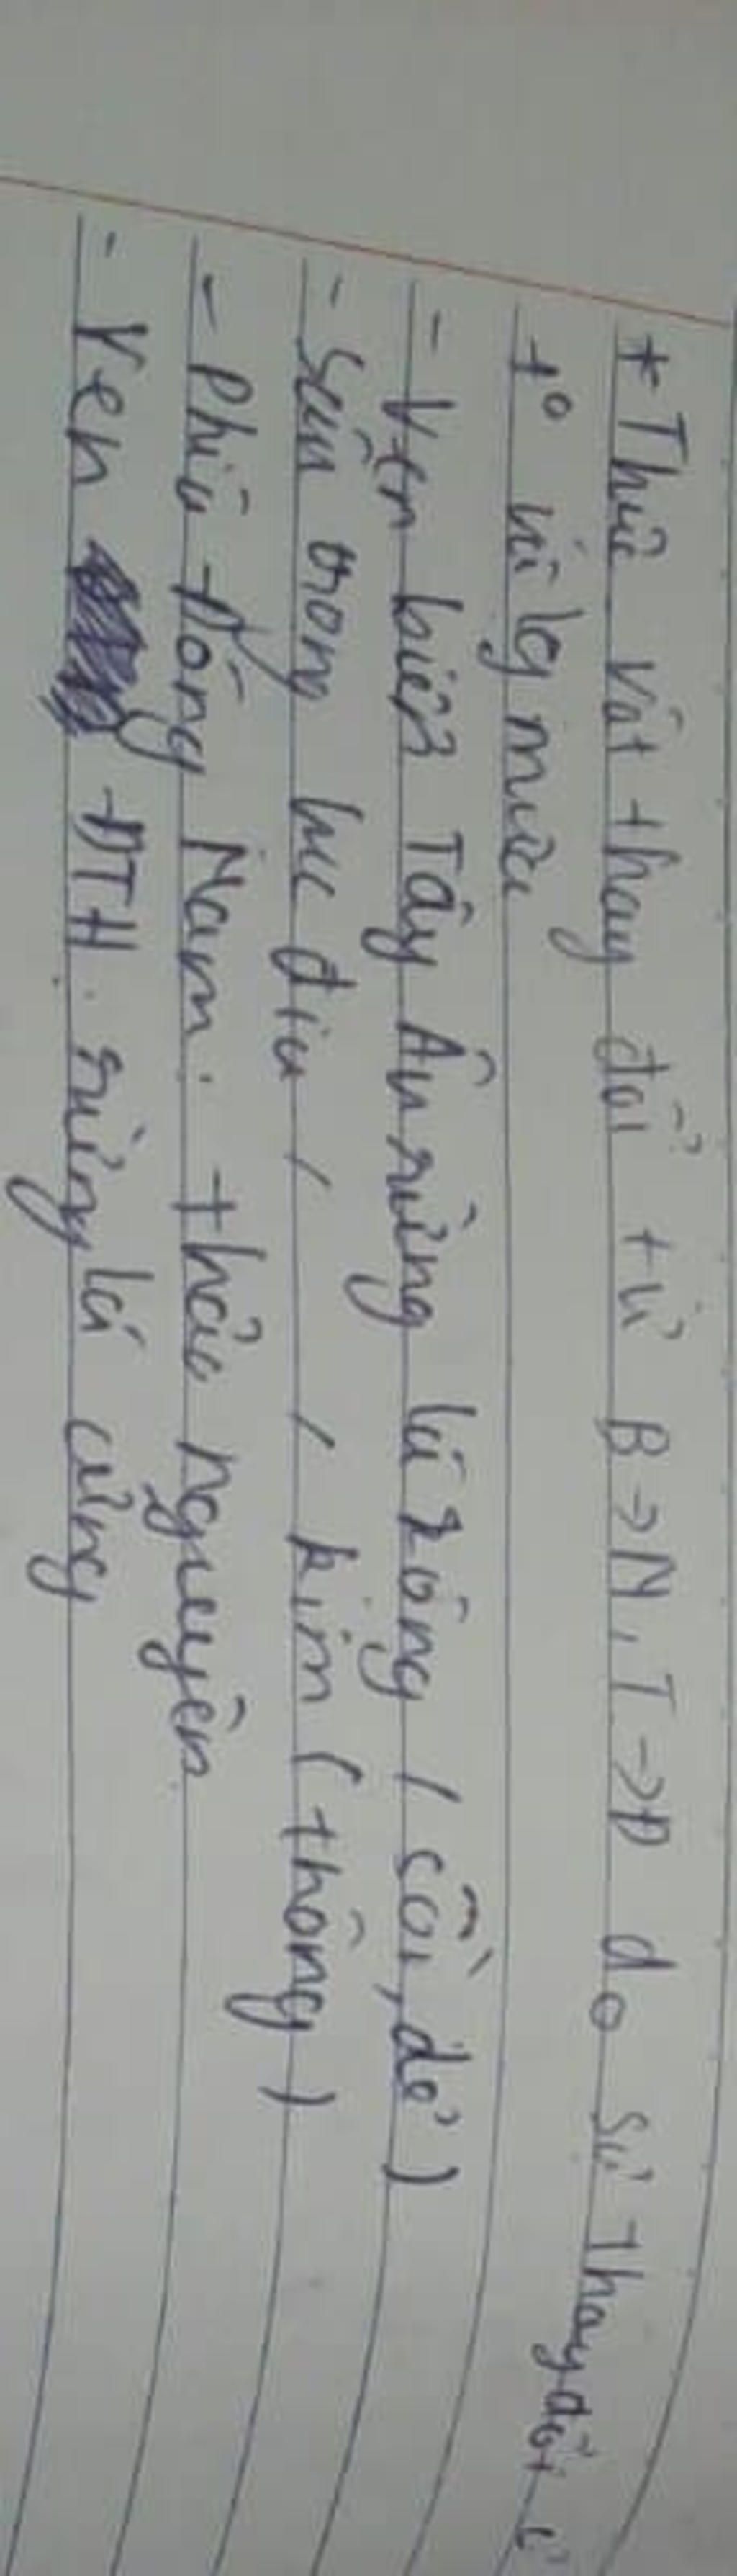 * Thực vật thay đổi từ B → N, T → Đ do sự thay đổi
t° và lg mưa
- Ven biển Tây Âu rừng lá rộng ( sồi, dẻ )
- Sâu trong lục địa , , kim ( thông )
- Phía Đông Nam: thảo nguyên
- Ven ĐTH. rừng lá cứng